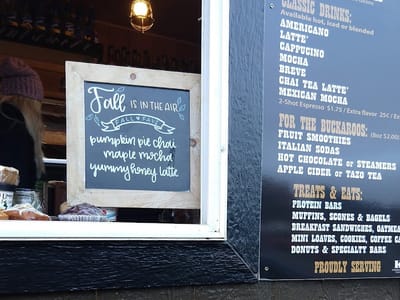 Fall IS IN THE AIR
FALL FAVS
pumpkin pie chai
maple mocha
yummy honey latte
CLASSIC DRINKS:
Available hot, iced or blended
AMERICANO
LATTE'
CAPPUCINO
MOCHA
BREVE
CHAI TEA LATTE'
MEXICAN MOCHA
2-Shot Espresso $1.75 / Extra flavor 25¢ / E
FOR THE BUCKAROOS: (8oz $2.00
FRUIT SMOOTHIES
ITALIAN SODAS
HOT CHOCOLATE or STEAMERS
APPLE CIDER or TAZO TEA
TREATS & EATS:
PROTEIN BARS
MUFFINS, SCONES & BAGELS
BREAKFAST SANDWICHES, OATMEA
MINI LOAVES, COOKIES, COFFEE CA
DONUTS & SPECIALTY BARS
PROUDLY SERVING